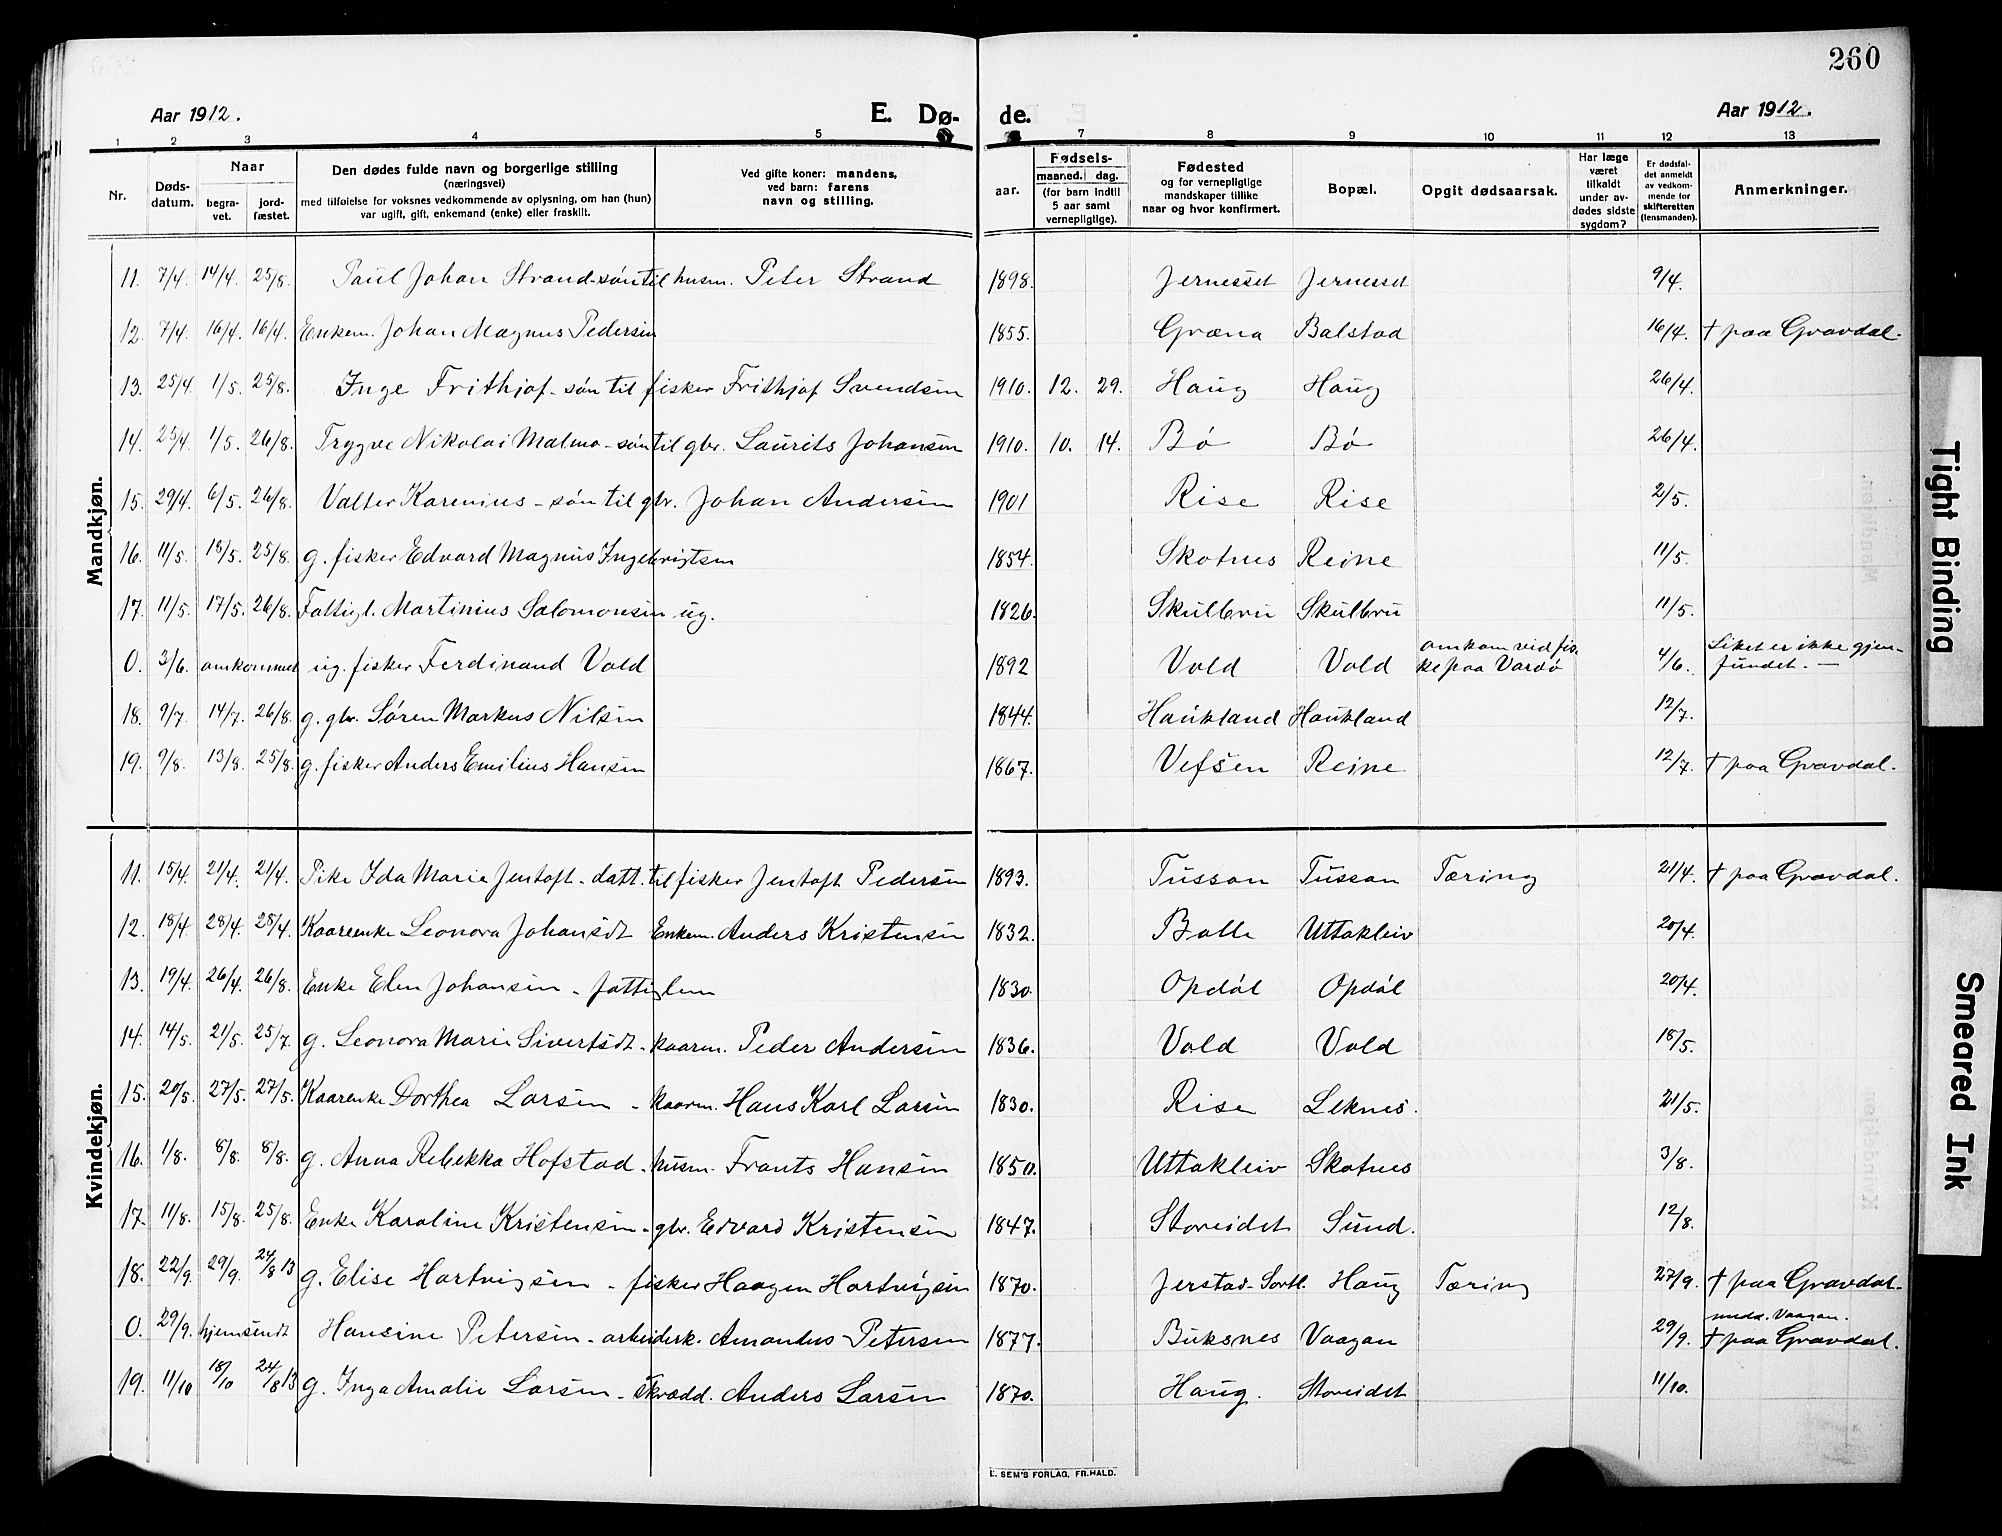 260
Aar 1912. E. Dø- de. Aar 1912.
1 2 3 4 5 7 8 9 10 11 12 13
Nr. Døds-datum. Naar begra-vet. jord-fæstet. Den dødes fulde navn og borgerlige stilling (næringsvei) med tilføielse for voksnes vedkommende av oplysning, om han (hun) var ugift, gift, enkemand (enke) eller fraskilt. Ved gifte koner: mandens, ved barn: farens navn og stilling. aar. Fødsels- maaned. dag. (for barn indtil 5 aar samt vernepligtige). Fødested og for vernepligtige mandskaper tillike naar og hvor konfirmert. Bopæl. Opgit dødsaarsak. Har læge været tilkaldt under av-dødes sidste sygdom? Er dødsfal-det anmeldt av vedkom-mende for skifteretten (lensmanden). Anmerkninger.
Mandkjøn.
11. 7/4. 14/4. 25/8. Paul Johan Strand - søn til husm. Peter Strand 1898. Jernesset Jernesset 9/4.
12. 7/4. 16/4. 16/4. Enkem. Johan Magnus Pedersen 1855. Græna Balstad 16/4. † paa Gravdal.
13. 25/4. 1/5. 25/8. Inge Frithjof - søn til fisker Frithjof Svendsen 1910. 12. 29. Haug Haug 26/4.
14. 25/4. 1/5. 26/8. Trygve Nikolai Malmo - søn til gbr. Laurits Johansen 1910. 10. 14. Bø Bø 26/4.
15. 29/4. 6/5. 26/8. Valter Karenius - søn til gbr. Johan Andersen 1901 Rise Rise 2/5.
16. 11/5. 18/5. 25/8. g. fisker Edvard Magnus Ingebrigtsen 1854. Skotnes Reine 11/5.
17. 11/5. 17/5. 26/8. Fattigl. Martinius Salomonsen ug. 1826. Skulbru Skulbru 11/5.
0. 3/6. omkommet ug. fisker Ferdinand Vold 1892 Vold Vold omkom ved fis-kepaa Vardø 4/6. Liket er ikke gjen-fundet. —
18. 9/7. 14/7. 26/8. g. gbr. Søren Markus Nilsen 1844. Haukland Haukland 12/7.
19. 9/8. 13/8. 25/8. g. fisker Anders Emilius Hansen 1867. Vefsen Reine 12/7. † paa Gravdal.
Kvindekjøn.
11. 15/4. 21/4. 21/4. Pike Ida Marie Jentoft - datt. til fisker Jentoft Pedersen 1893. Tussan Tussan Tæring 21/4. † paa Gravdal.
12. 18/4. 28/4. 28/4. Kaareenke Leonora Johansdt Enkem. Anders Kristensen 1832. Balle Uttakleiv 20/4.
13. 19/4. 26/4. 26/8. Enke Elen Johansen - fattiglem 1830. Opdøl Opdøl 20/4.
14. 14/5. 21/5. 25/7. g. Leonora Marie Sivertsdt - kaarm. Peder Andersen 1836. Vold Vold 18/5.
15. 20/5. 27/5. 27/5. Kaarenke Dorthea Larsen - kaarm. Hans Karl Larsen 1830. Rise Leknes. 21/5.
16. 1/8. 8/8. 8/8. g. Anna Rebekka Hofstad - husm. Frants Hansen 1850. Uttakleiv Skotnes 3/8.
17. 11/8. 15/8. 25/8. Enke Karoline Kristensen - gbr. Edvard Kristensen 1847. Storeidet Sund. 12/8.
18. 22/9. 29/9. 24/8 13 g. Elise Hartvigsen - fisker Haagen Hartvigsen 1870. Jerstad - Sortl. Haug Tæring 27/9. † paa Gravdal.
0. 29/9. hjemsendt Hansine Petersen - arbeiderk. Amandus Petersen 1877. Buksnes Vaagan 29/9. medd. Vaagan. † paa Gravdal.
19. 11/10 18/10 24/8 13 g. Inga Amalie Larsen - skrædd. Anders Larsen 1870. Haug. Storeidet 11/10.
E. SEM'S FORLAG, FR.HALD.
Tight Binding
Smeared Ink